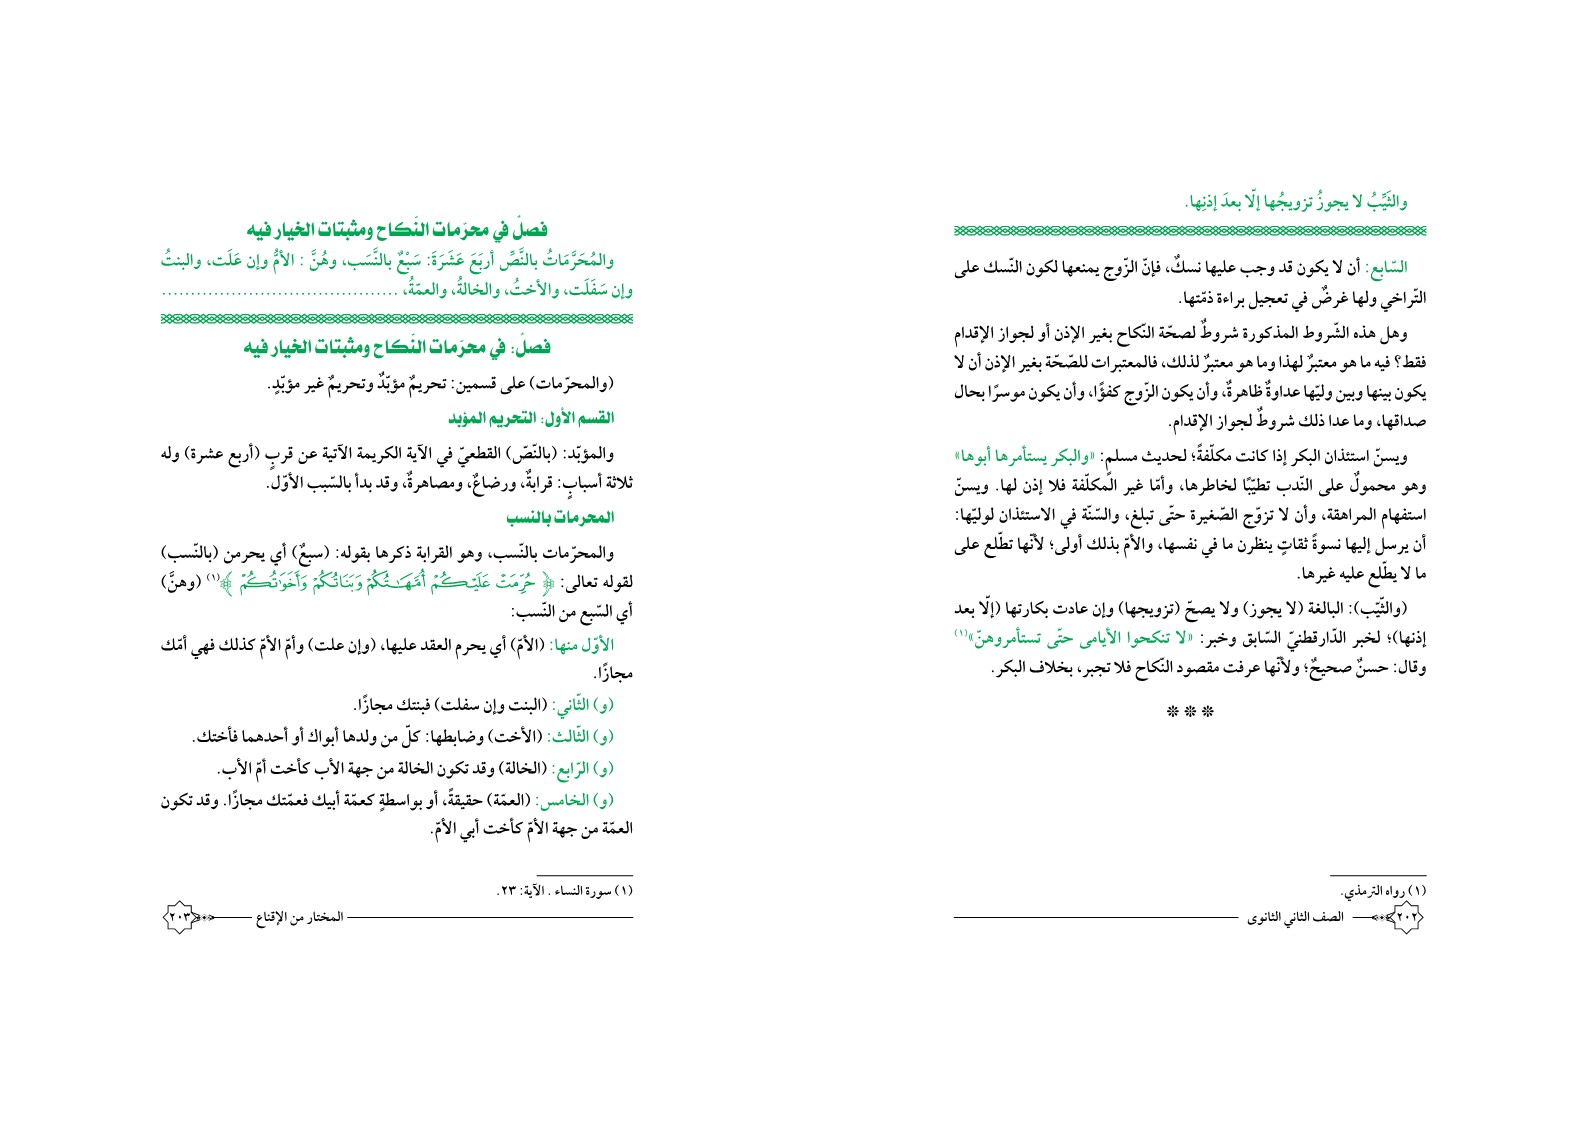 والثَّيِّبُ لا يجوزُ تزويجُها إلّا بعدَ إذنِها.
السّابع: أن لا يكون قد وجب عليها نسكٌ، فإنّ الزّوج يمنعها لكون النّسك على
التّراخي ولها غرضٌ في تعجيل براءة ذمّتها.
وهل هذه الشّروط المذكورة شروطٌ لصحّة النّكاح بغير الإذن أو لجواز الإقدام
فقط؟ فيه ما هو معتبرٌ لهذا وما هو معتبرٌ لذلك، فالمعتبرات للصّحّة بغير الإذن أن لا
يكون بينها وبين وليّها عداوةٌ ظاهرةٌ، وأن يكون الزّوج كفؤًا، وأن يكون موسرًا بحال
صداقها، وما عدا ذلك شروطٌ لجواز الإقدام.
ويسنّ استئذان البكر إذا كانت مكلّفةً؛ لحديث مسلمٍ: «والبكر يستأمرها أبوها»
وهو محمولٌ على النّدب تطيّبًا لخاطرها، وأمّا غير المكلّفة فلا إذن لها. ويسنّ
استفهام المراهقة، وأن لا تزوّج الصّغيرة حتّى تبلغ، والسّنّة في الاستئذان لوليّها:
أن يرسل إليها نسوةً ثقاتٍ ينظرن ما في نفسها، والأمّ بذلك أولى؛ لأنّها تطّلع على
ما لا يطّلع عليه غيرها.
(والثّيّب): البالغة (لا يجوز) ولا يصحّ (تزويجها) وإن عادت بكارتها (إلّا بعد
إذنها)؛ لخبر الدّارقطنيّ السّابق وخبر: «لا تنكحوا الأيامى حتّى تستأمروهنّ»(١)
وقال: حسنٌ صحيحٌ؛ ولأنّها عرفت مقصود النّكاح فلا تجبر، بخلاف البكر.
❊ ❊ ❊
(١) رواه الترمذي.
٢٠٢ الصف الثاني الثانوى
فصلٌ في محرّمات النّكاح ومثبتات الخيار فيه
والمُحَرَّمَاتُ بالنَّصِّ أربَعَ عَشَرَةَ: سَبْعٌ بالنَّسَب، وهُنَّ : الأمُّ وإن عَلَت، والبنتُ
وإن سَفَلَت، والأختُ، والخالةُ، والعمّةُ، .........................................
فصلٌ: في محرّمات النّكاح ومثبتات الخيار فيه
(والمحرّمات) على قسمين: تحريمٌ مؤبّدٌ وتحريمٌ غير مؤبّدٍ.
القسم الأول: التحريم المؤبد
والمؤبّد: (بالنّصّ) القطعيّ في الآية الكريمة الآتية عن قربٍ (أربع عشرة) وله
ثلاثة أسبابٍ: قرابةٌ، ورضاعٌ، ومصاهرةٌ، وقد بدأ بالسّبب الأوّل.
المحرمات بالنسب
والمحرّمات بالنّسب، وهو القرابة ذكرها بقوله: (سبعٌ) أي يحرمن (بالنّسب)
لقوله تعالى: ﴿ حُرِّمَتْ عَلَيْكُمْ أُمَّهَـٰتُكُمْ وَبَنَاتُكُمْ وَأَخَوَٰتُكُمْ ﴾(١) (وهنَّ)
أي السّبع من النّسب:
الأوّل منها: (الأمّ) أي يحرم العقد عليها، (وإن علت) وأمّ الأمّ كذلك فهي أمّك
مجازًا.
(و) الثّاني: (البنت وإن سفلت) فبنتك مجازًا.
(و) الثّالث: (الأخت) وضابطها: كلّ من ولدها أبواك أو أحدهما فأختك.
(و) الرّابع: (الخالة) وقد تكون الخالة من جهة الأب كأخت أمّ الأب.
(و) الخامس: (العمّة) حقيقةً، أو بواسطةٍ كعمّة أبيك فعمّتك مجازًا. وقد تكون
العمّة من جهة الأمّ كأخت أبي الأمّ.
(١) سورة النساء . الآية: ٢٣.
المختار من الإقناع ٢٠٣